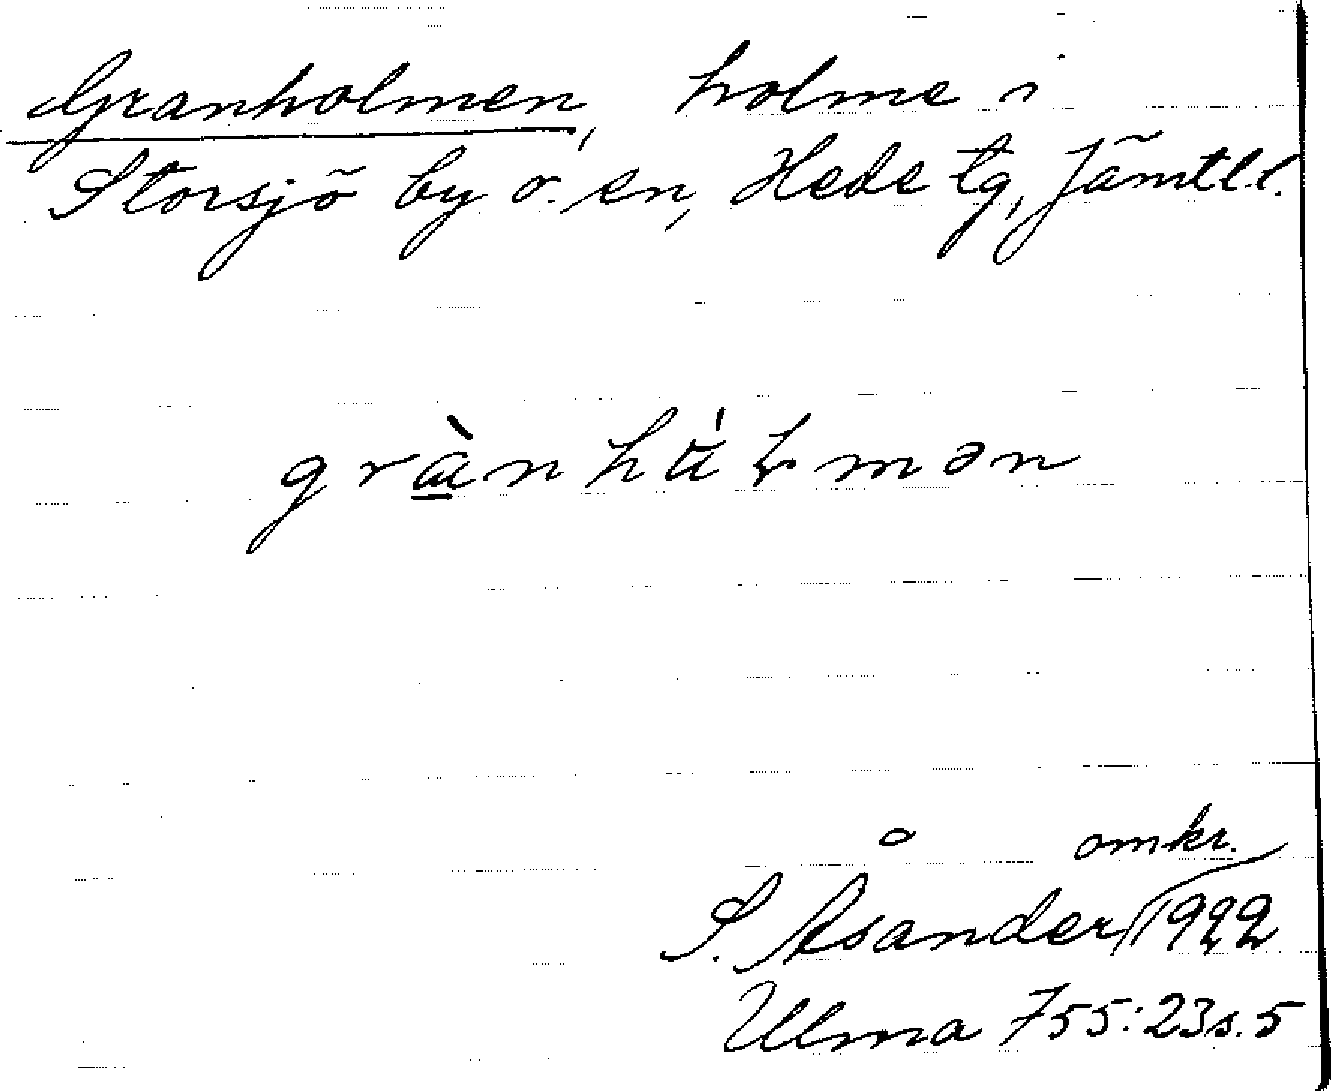 Granholmen, holme i
Storsjö by o. sn, Hede tg, Jämtl.l.
omkr.
S. Åsander 1922
Ulma 755:23 s. 5